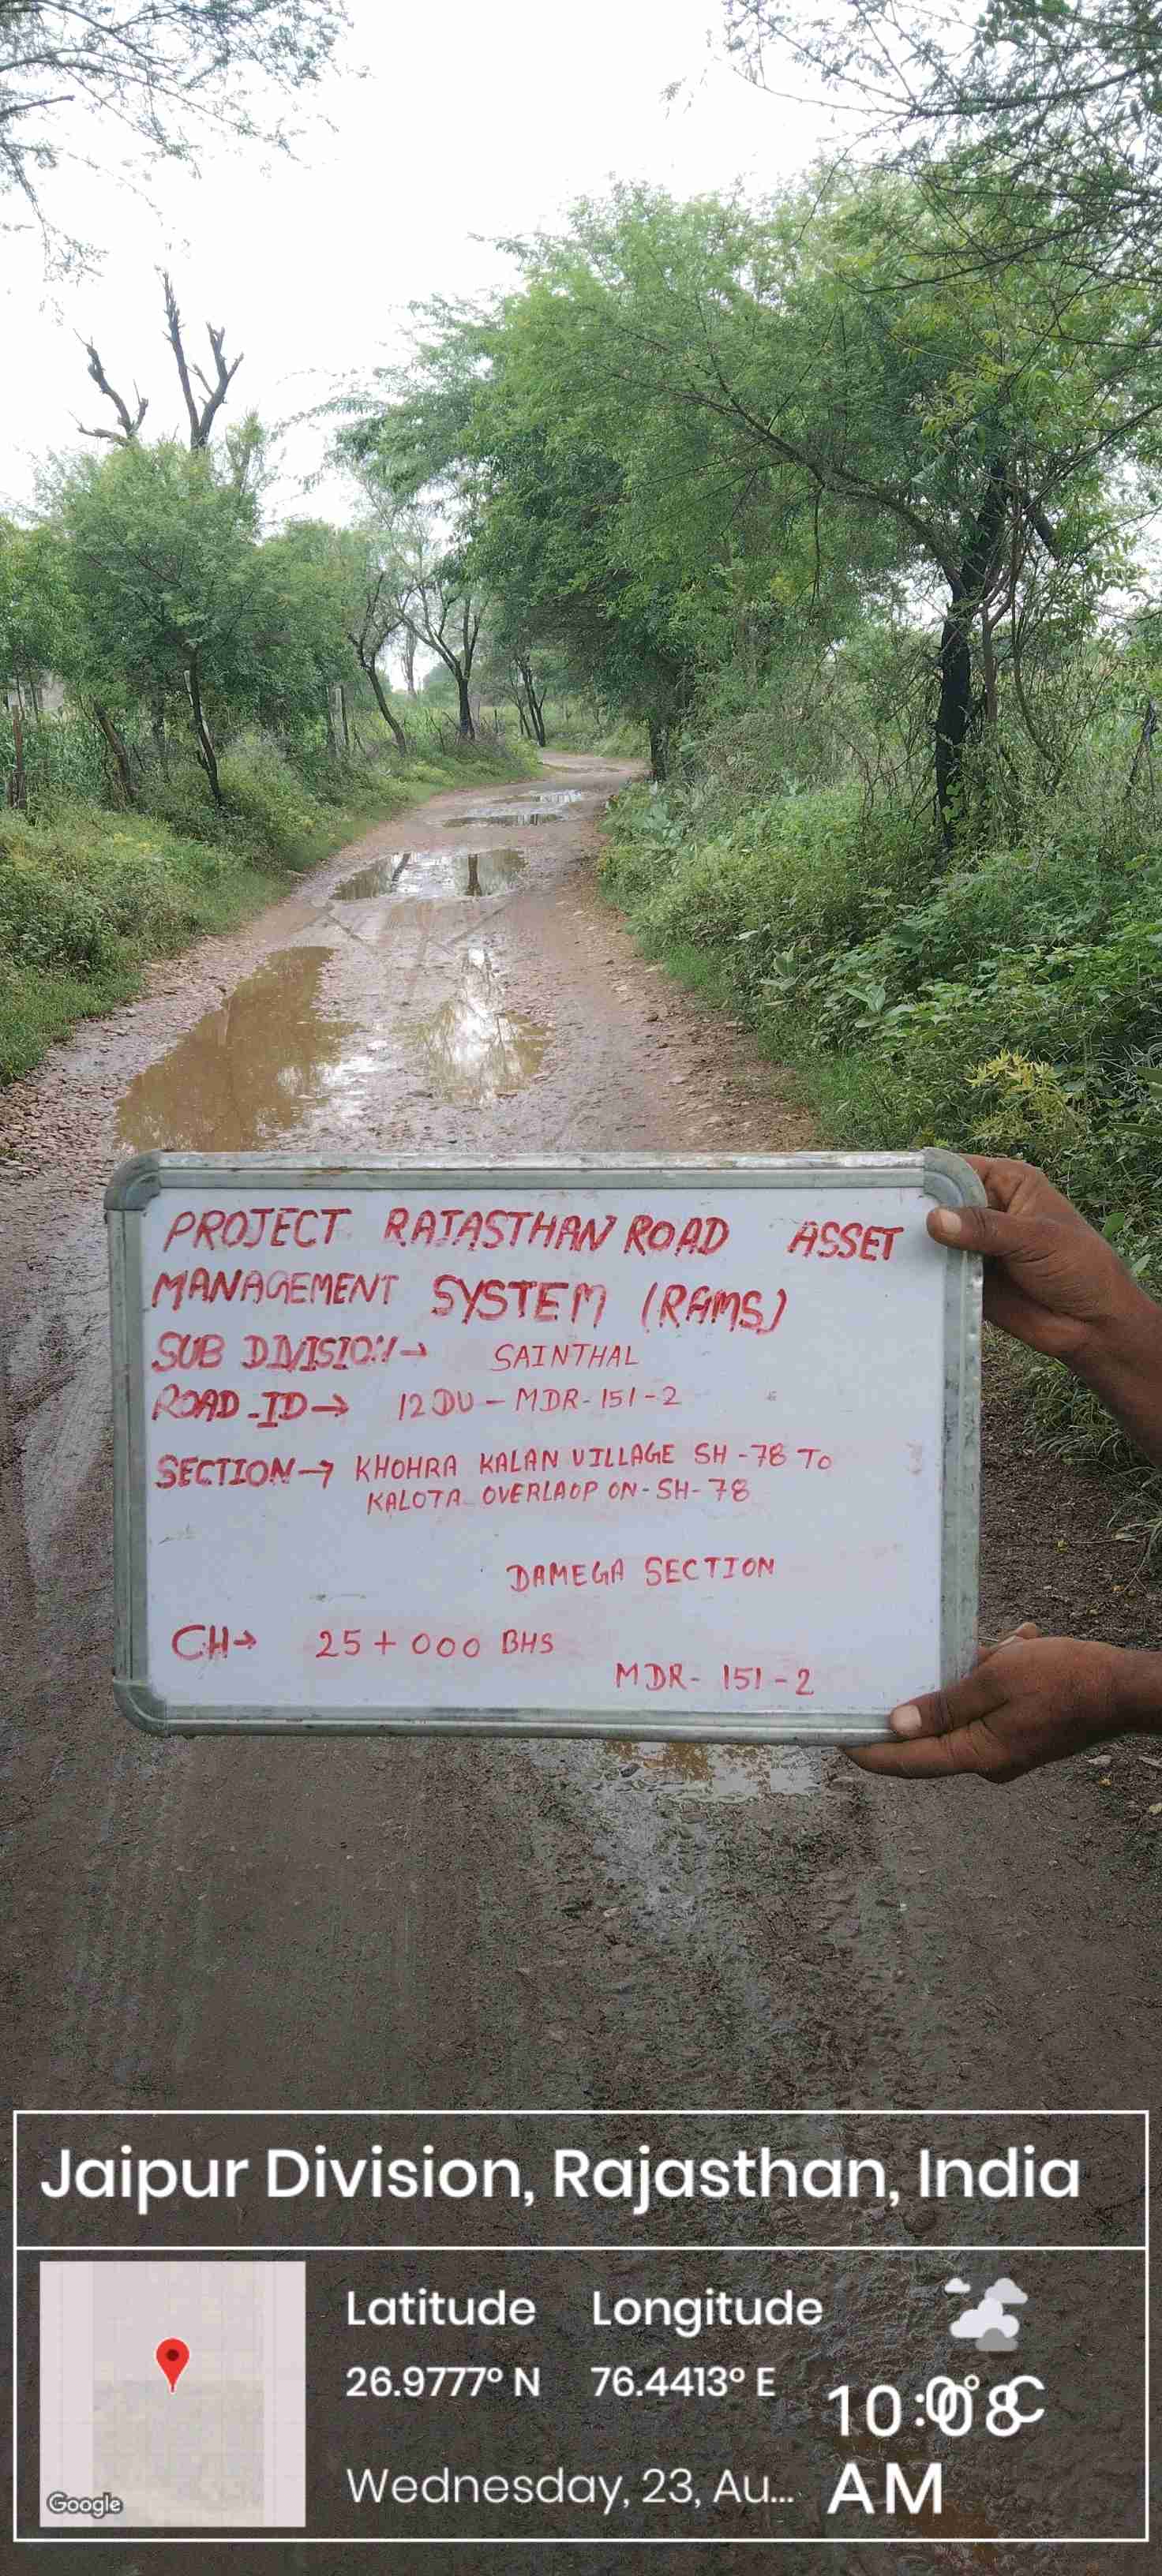 PROJECT RAJASTHAN ROAD ASSET
MANAGEMENT SYSTEM (RAMS)
SUB DIVISION→ SAINTHAL
ROAD-ID→ 12DU-MDR-151-2
SECTION→ KHOHRA KALAN VILLAGE SH-78 TO
KALOTA OVERLAOP ON-SH-78
DAMEGA SECTION
CH→ 25+000 BHS
MDR-151-2
Jaipur Division, Rajasthan, India
Latitude Longitude
26.9777° N 76.4413° E
10:08
Wednesday, 23, Au... AM
Google